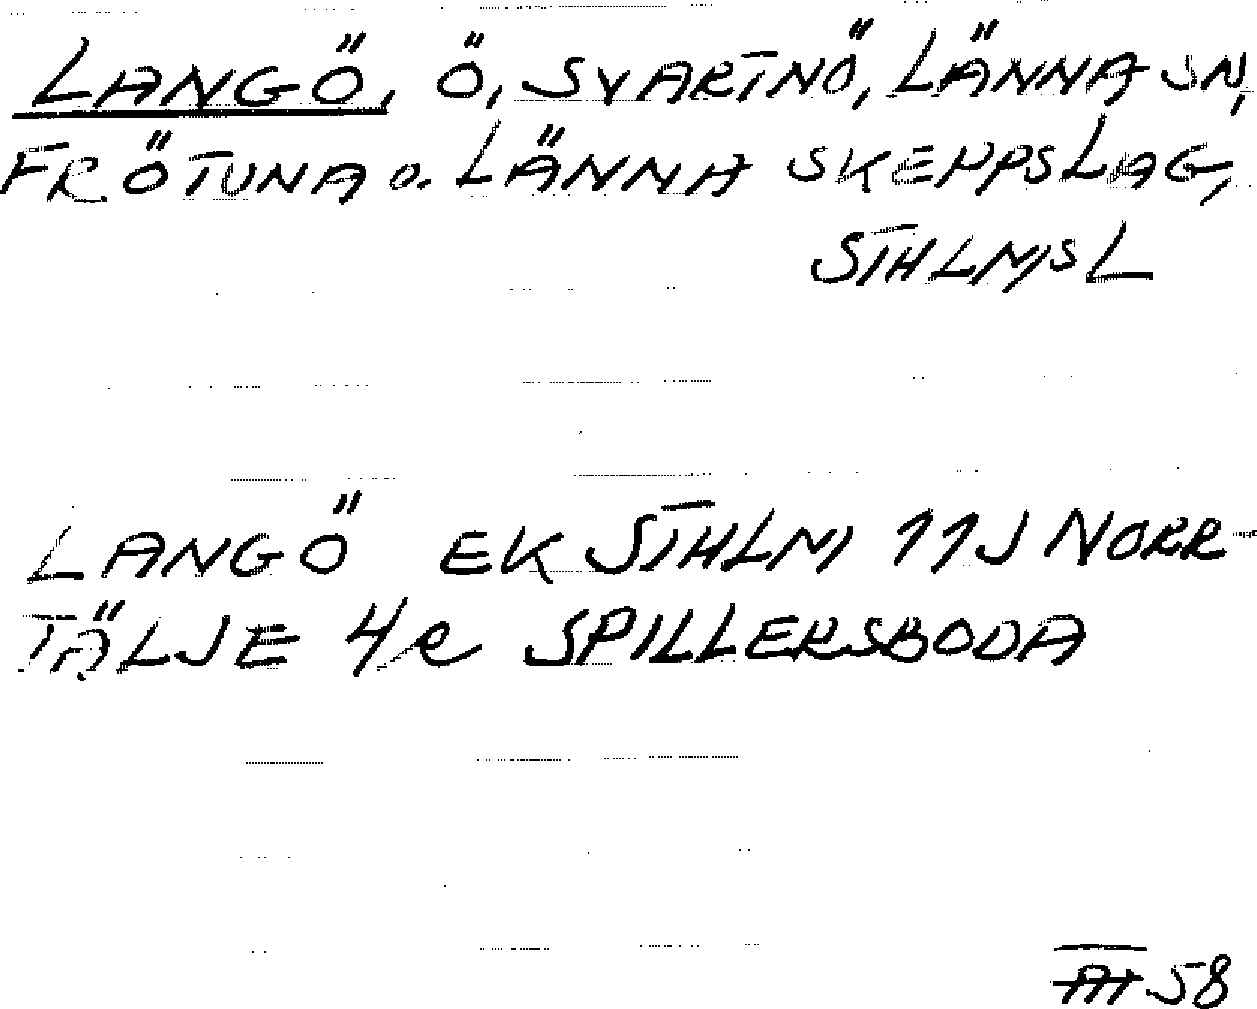 LANGÖ, Ö, SVARTNÖ, LÄNNA SN,
FRÖTUNA o. LÄNNA SKEPPSLAG,
STHLMS L
LANGÖ EK STHLM 11J NORR-
TÄLJE 4/e SPILLERSBODA
58